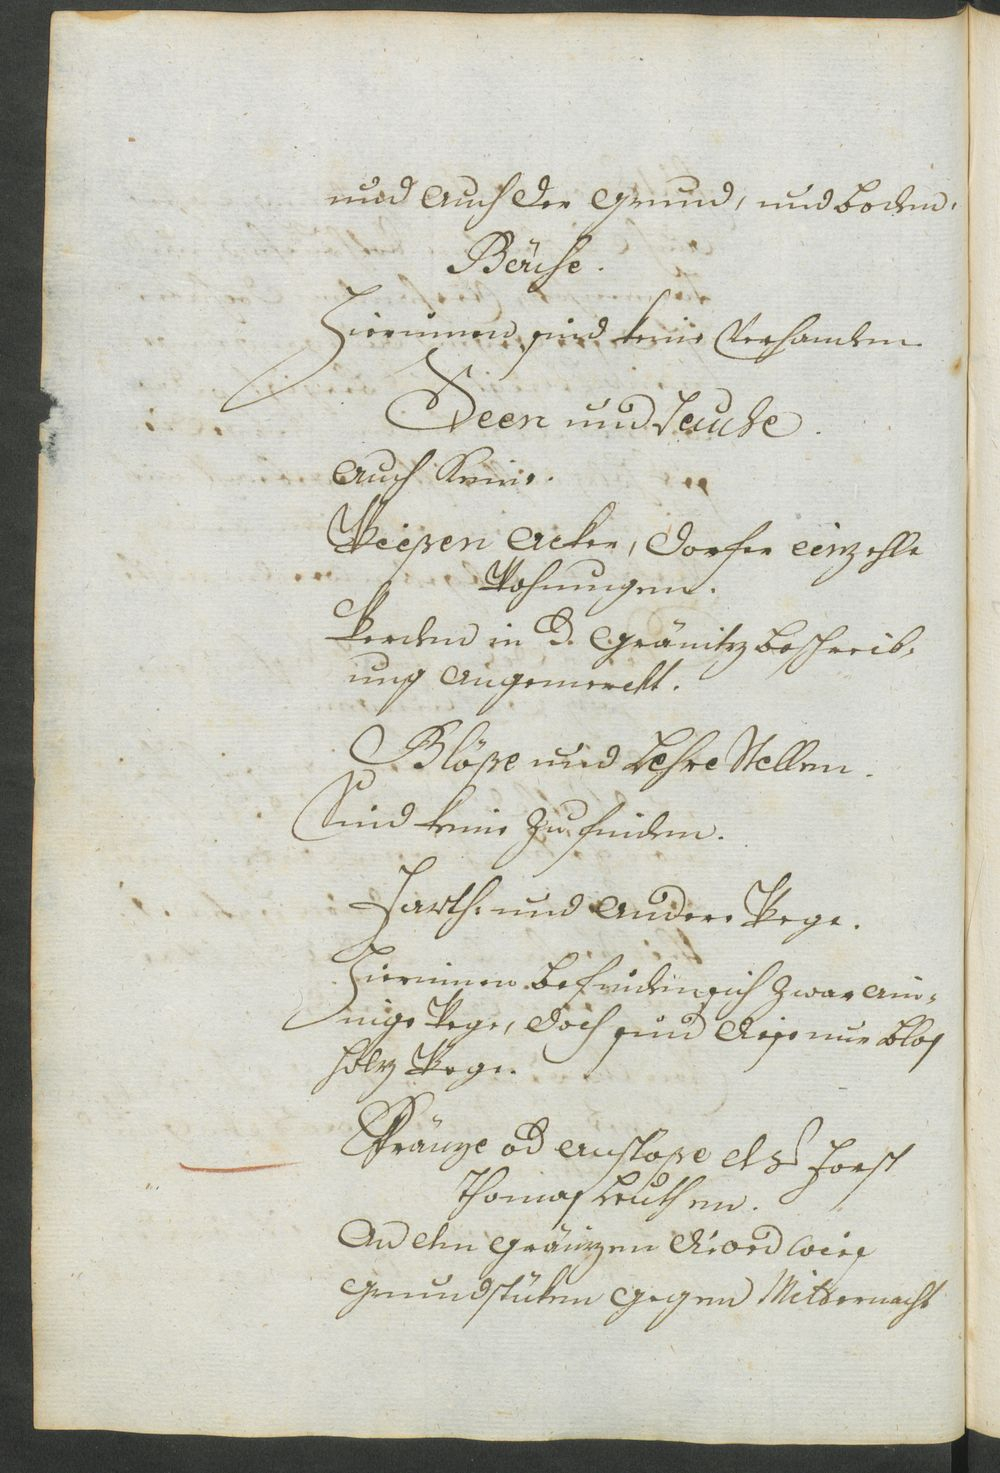 und auch der Grund, und boden.
Bäche.
Hierinnen sind keine Verhanden.
Seen und Teuche.
Auch Keine.
Wießen Acker, Dorfer einzehle
Wohnungen.
Werden in d. Gränitz beschreib-
ung angemerckt.
Blöße und Lehre Stellen.
Sind keine zu finden.
Harth- und andere Wege.
Hierinnen befinden sich zwar ein-
nige Wege, doch sind diese nur blos
holz Wege.
Gränze od Anstöße des Forst
Thomas leuthen.
An den Gränzen
Grundstüken gegen Mitternacht